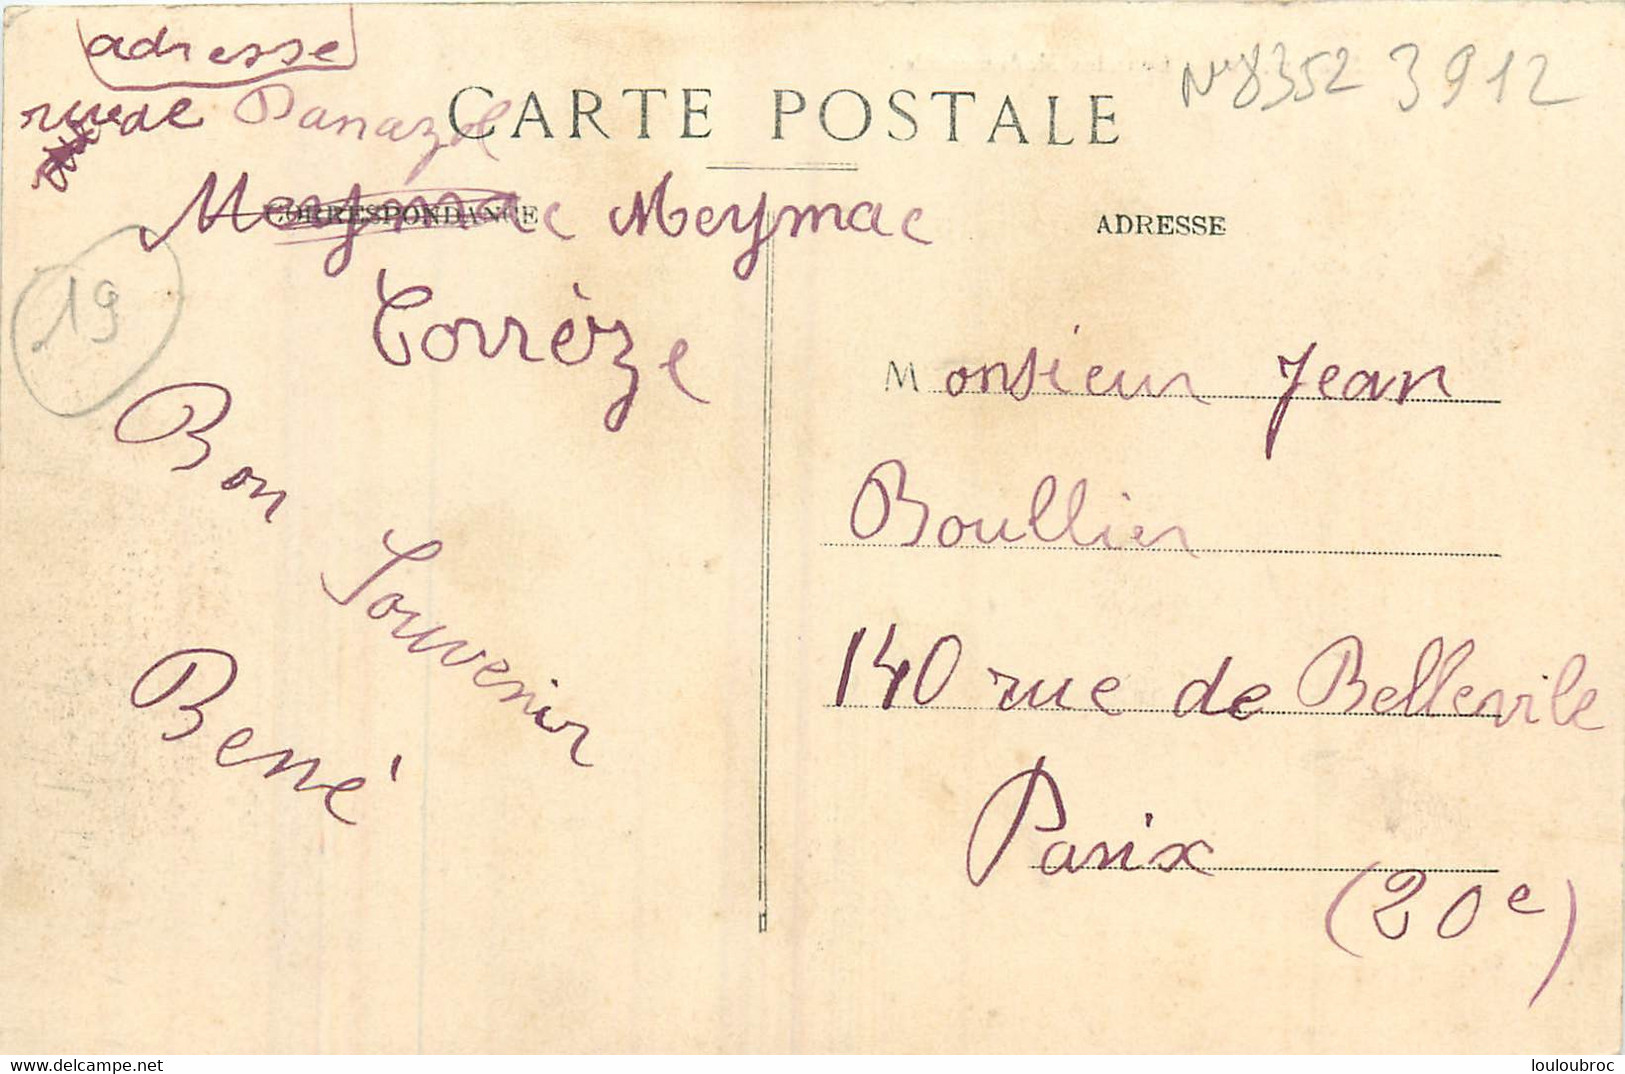 adresse
rue de Panazol
CARTE POSTALE
8352 3912
Meymac Meymac
CORRESPONDANCE
ADRESSE
Corrèze
19
Bon Souvenir
Monsieur Jean
Boullier
140 rue de Bellevile
Paris
(20e)
delcampe.net
louloubroc